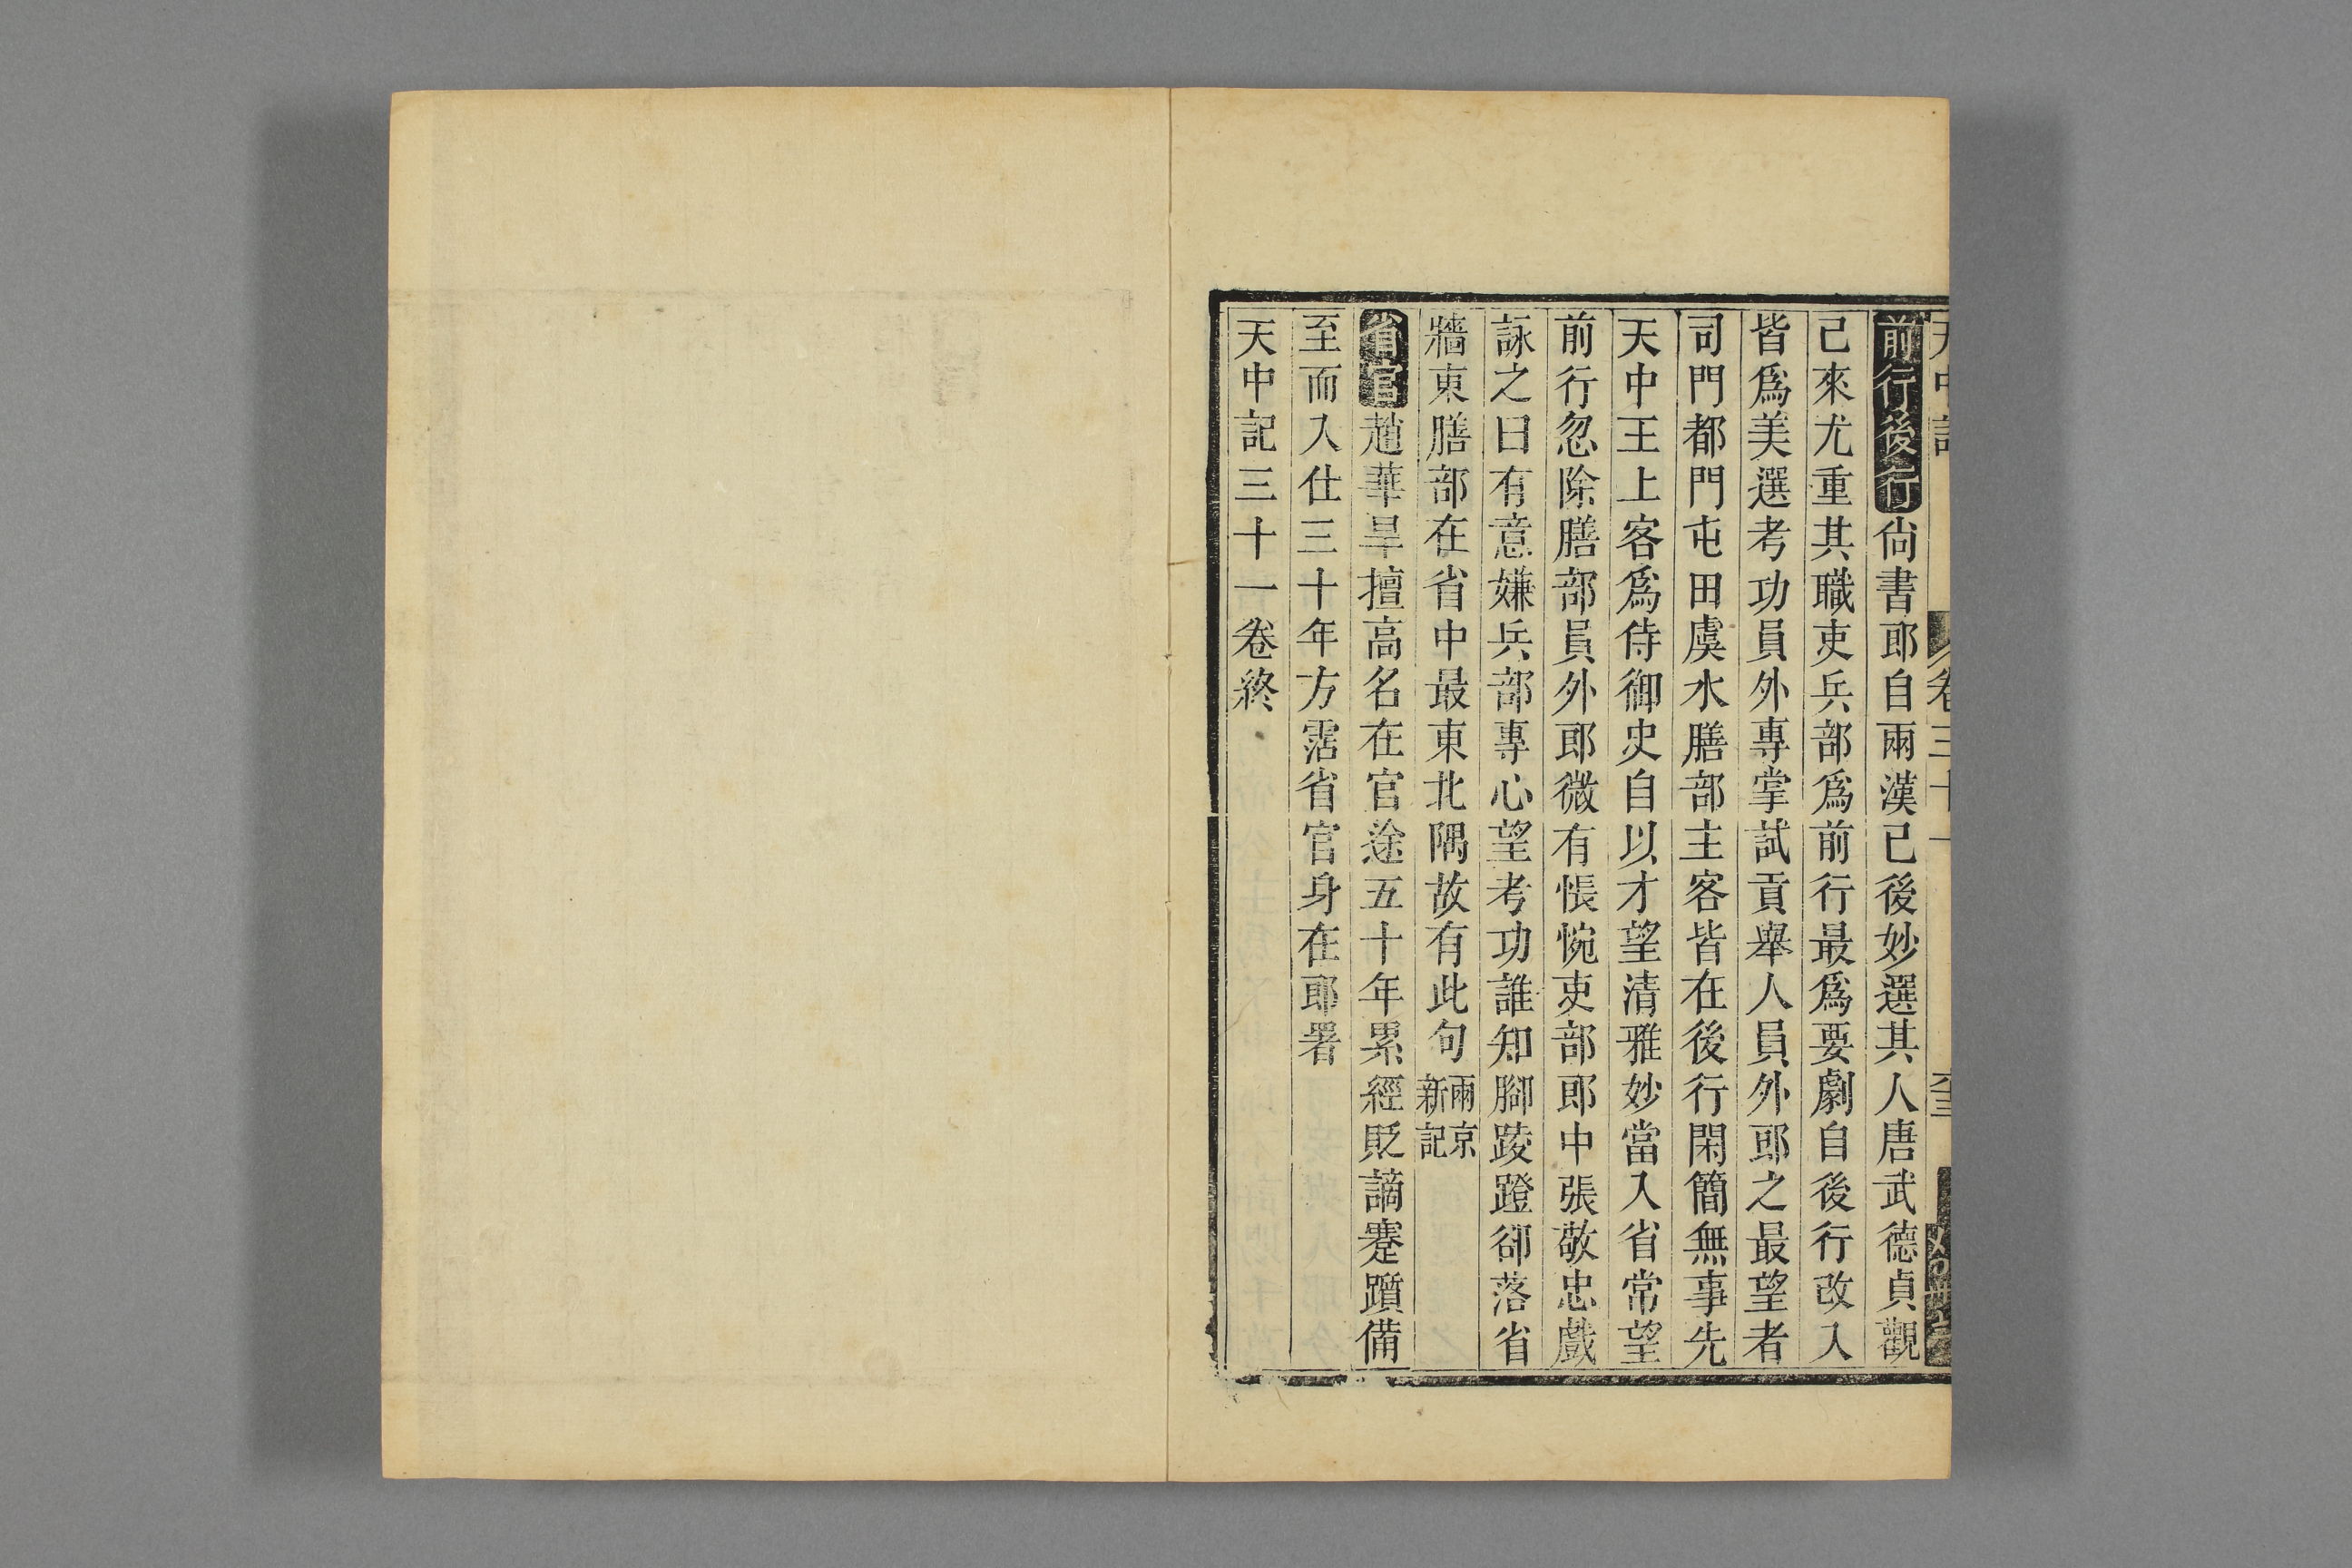 前行後行尙書郎自兩漢已後妙選其人唐武德貞觀
已來尤重其職吏兵部爲前行最爲要劇自後行改入
皆爲美選考功員外專掌試貢舉人員外郎之最望者
司門都門屯田虞水膳部主客皆在後行閑簡無事先
天中王上客爲侍御史自以才望清雅妙當入省常望
前行忽除膳部員外郎微有悵惋吏部郎中張敬忠戲
詠之曰有意嫌兵部專心望考功誰知腳踜蹬郤落省
牆東膳部在省中最東北隅故有此句兩京新記
省官趙華早擅高名在官途五十年累經貶謫蹇躓備
至而入仕三十年方霑省官身在郎署
天中記三十一卷終